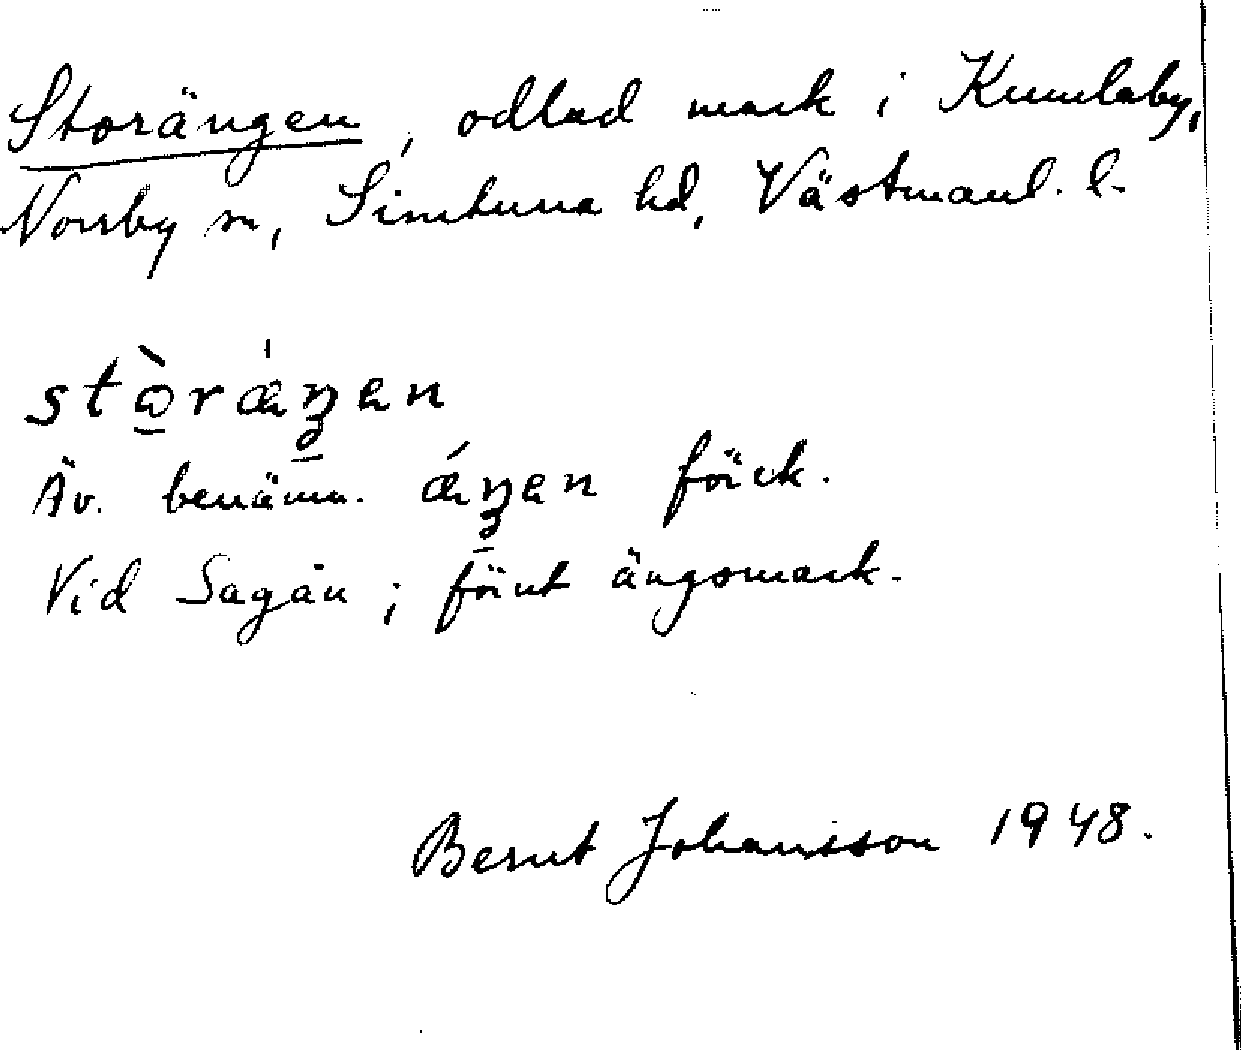 Storängen, odlad mark i Kumlaby,
Norrby sn, Simtuna hd, Västmanl. l.
stòrǽŋen
Äv. benämn. ǽŋen förk.
Vid Sagån; förut ängsmark.
Bernt Johansson 1948.